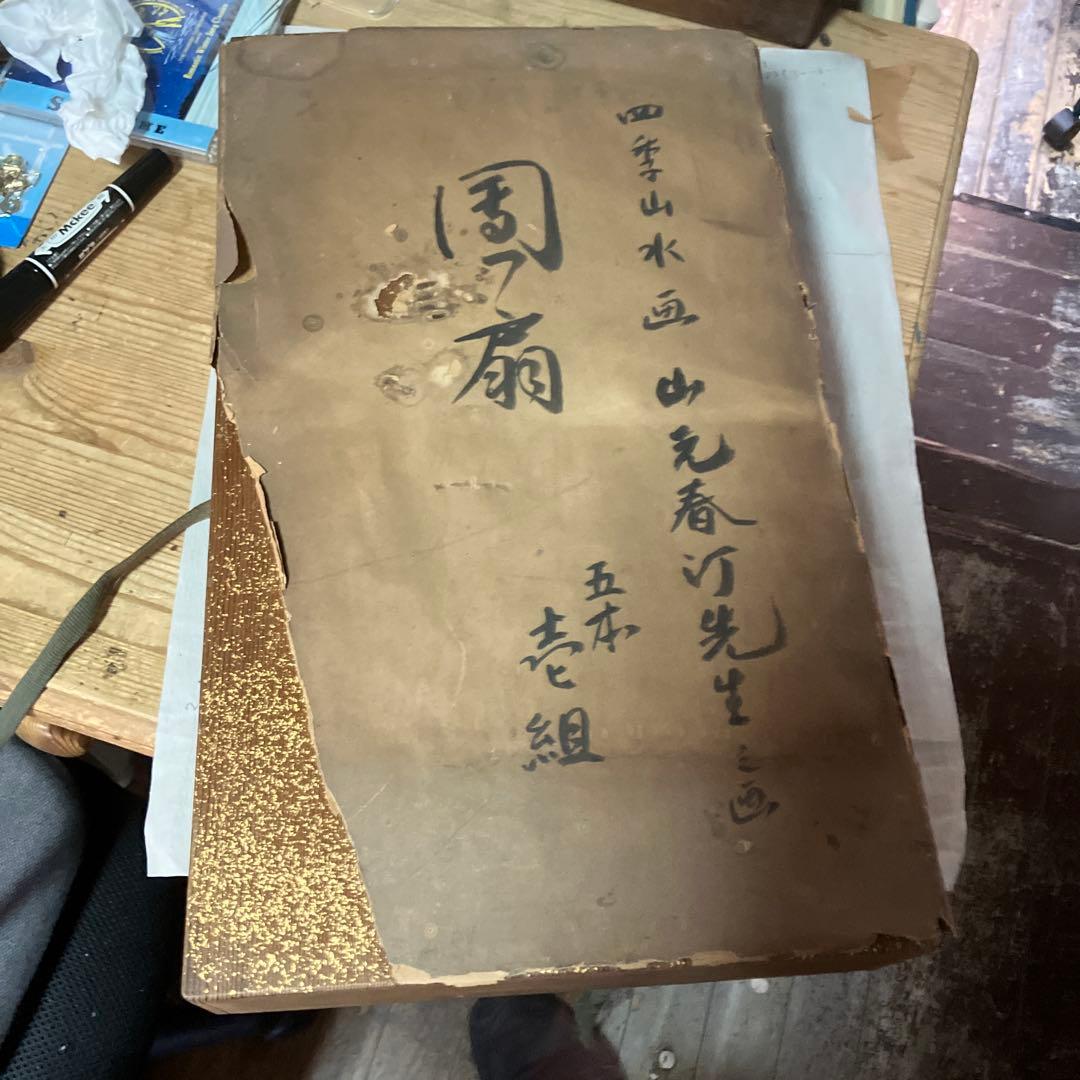 四季山水画 山元春汀先生之画
團扇
五本
壱組
Mckee